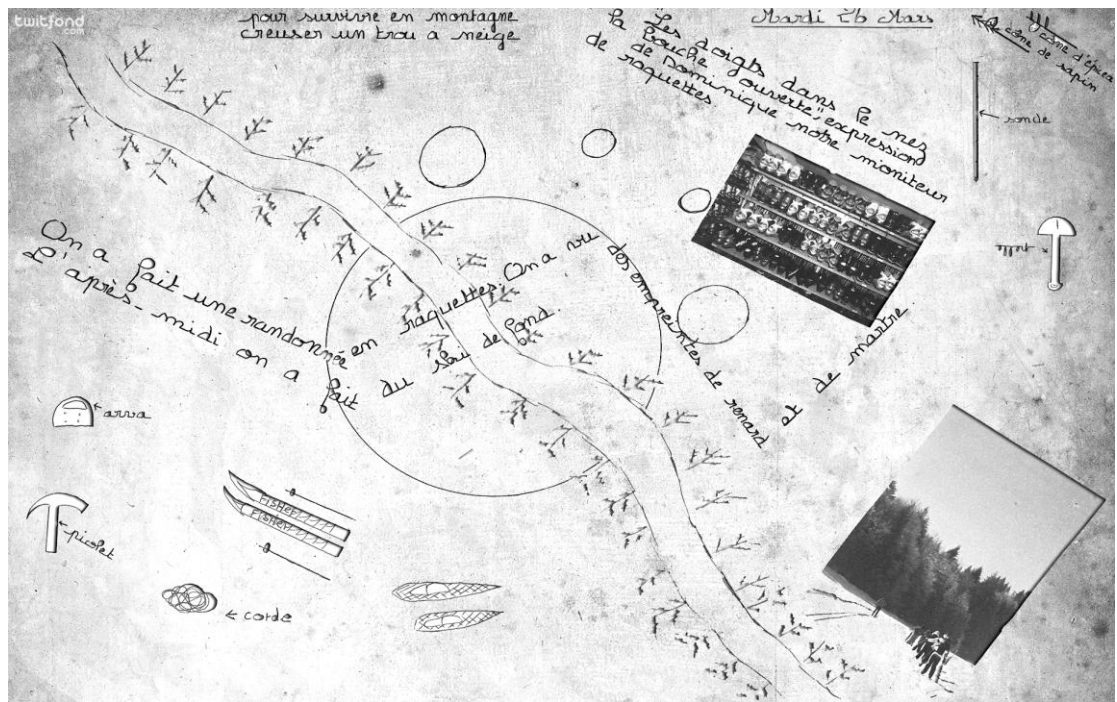 twitfond
.com
pour survivre en montagne
creuser un trou a neige
Mardi 26 Mars
cône de sapin
sonde
"Les doigts dans le nez
la bouche ouverte", expression
de Dominique notre moniteur
de raquettes.
On a fait une randonnée en raquettes. On a vu des empreintes de renard et de martre
L'après-midi on a fait du ski de fond
arva
picolet
FISHER
FISHER
corde